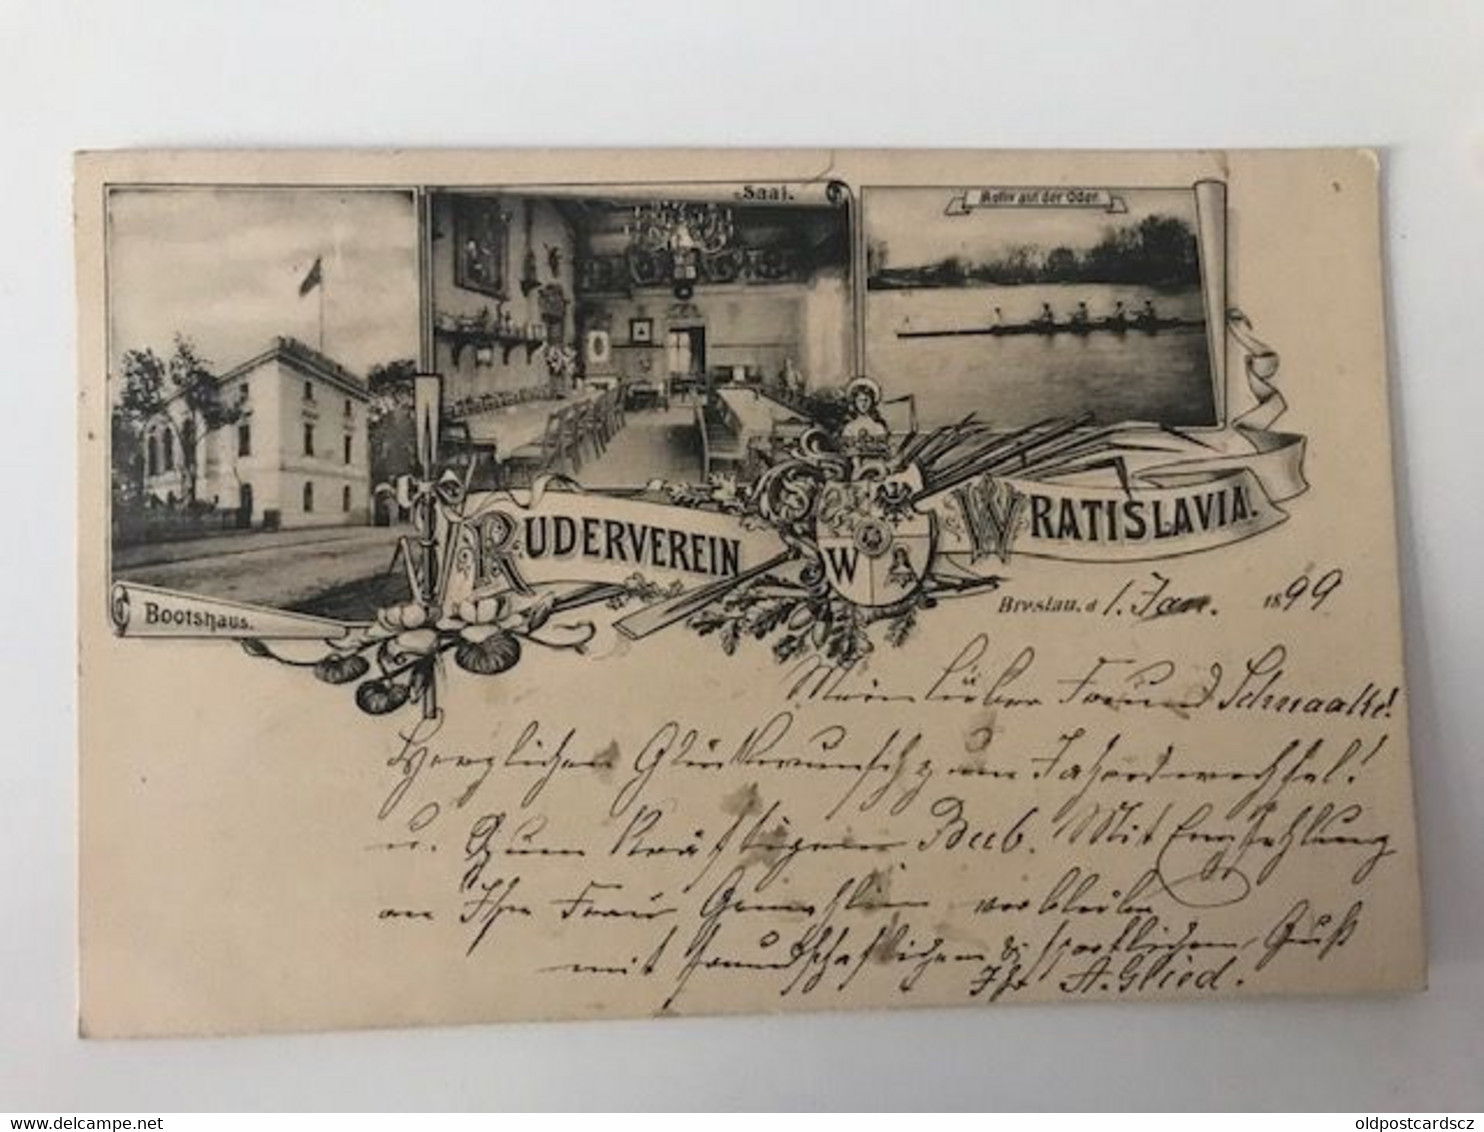 Saal.
Motiv auf der Oder.
Bootshaus.
RUDERVEREIN WRATISLAVIA.
W
Breslau, d 1. Jan. 1899
Mein lieber Freund Schnaake!
Herzlichen Glückwunsch zum Jahreswechsel!
u. zum kräftigen Bub. Mit Empfehlung
an Ihre Frau Gemahlin verbleibe
mit freundschaftlichem & sportlichem Gruß
Ihr A. Glied.
delcampe.net
oldpostcardscz